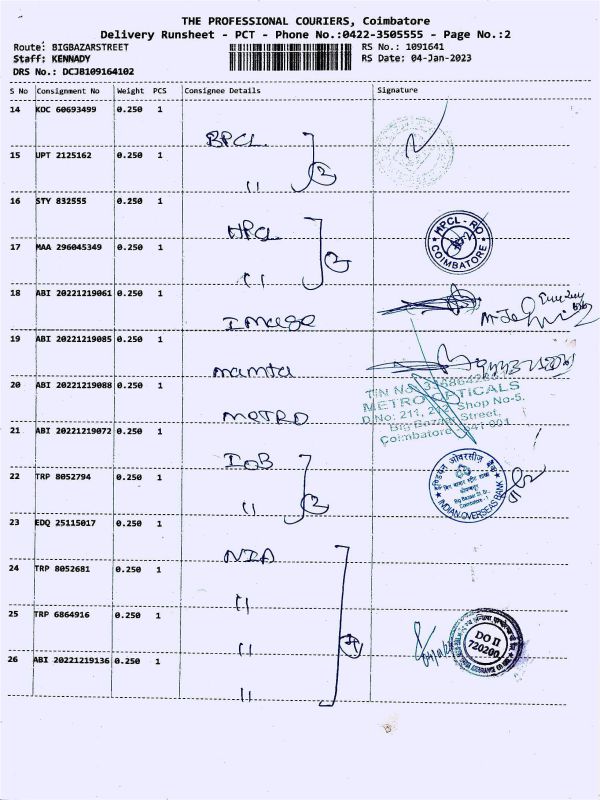 THE PROFESSIONAL COURIERS, Coimbatore
Delivery Runsheet - PCT - Phone No.:0422-3505555 - Page No.:2
Route: BIGBAZARSTREET RS No.: 1091641
Staff: KENNADY RS Date: 04-Jan-2023
DRS No.: DCJB109164102
S No Consignment No Weight PCS Consignee Details Signature
14 KOC 60693499 0.250 1 BPCL
15 UPT 2125162 0.250 1 " 2
16 STY 832555 0.250 1 HPCL
HPCL - RO
COIMBATORE
17 MAA 296045349 0.250 1 " 2
18 ABI 20221219061 0.250 1 Image
19 ABI 20221219085 0.250 1 mamta
20 ABI 20221219088 0.250 1 METRO
METRO OPTICALS
D.No: 211, 212, Shop No-5.
Big Bazaar Street,
Coimbatore - 641 001
21 ABI 20221219072 0.250 1 IOB
22 TRP 8052794 0.250 1 " 2
इण्डियन ओवरसीज़ बैंक
Big Bazaar St. Br.,
Coimbatore - 1
INDIAN OVERSEAS BANK
23 EDQ 25115017 0.250 1 NIA
24 TRP 8052681 0.250 1 "
25 TRP 6864916 0.250 1 "
DO II
720200
26 ABI 20221219136 0.250 1 " 4